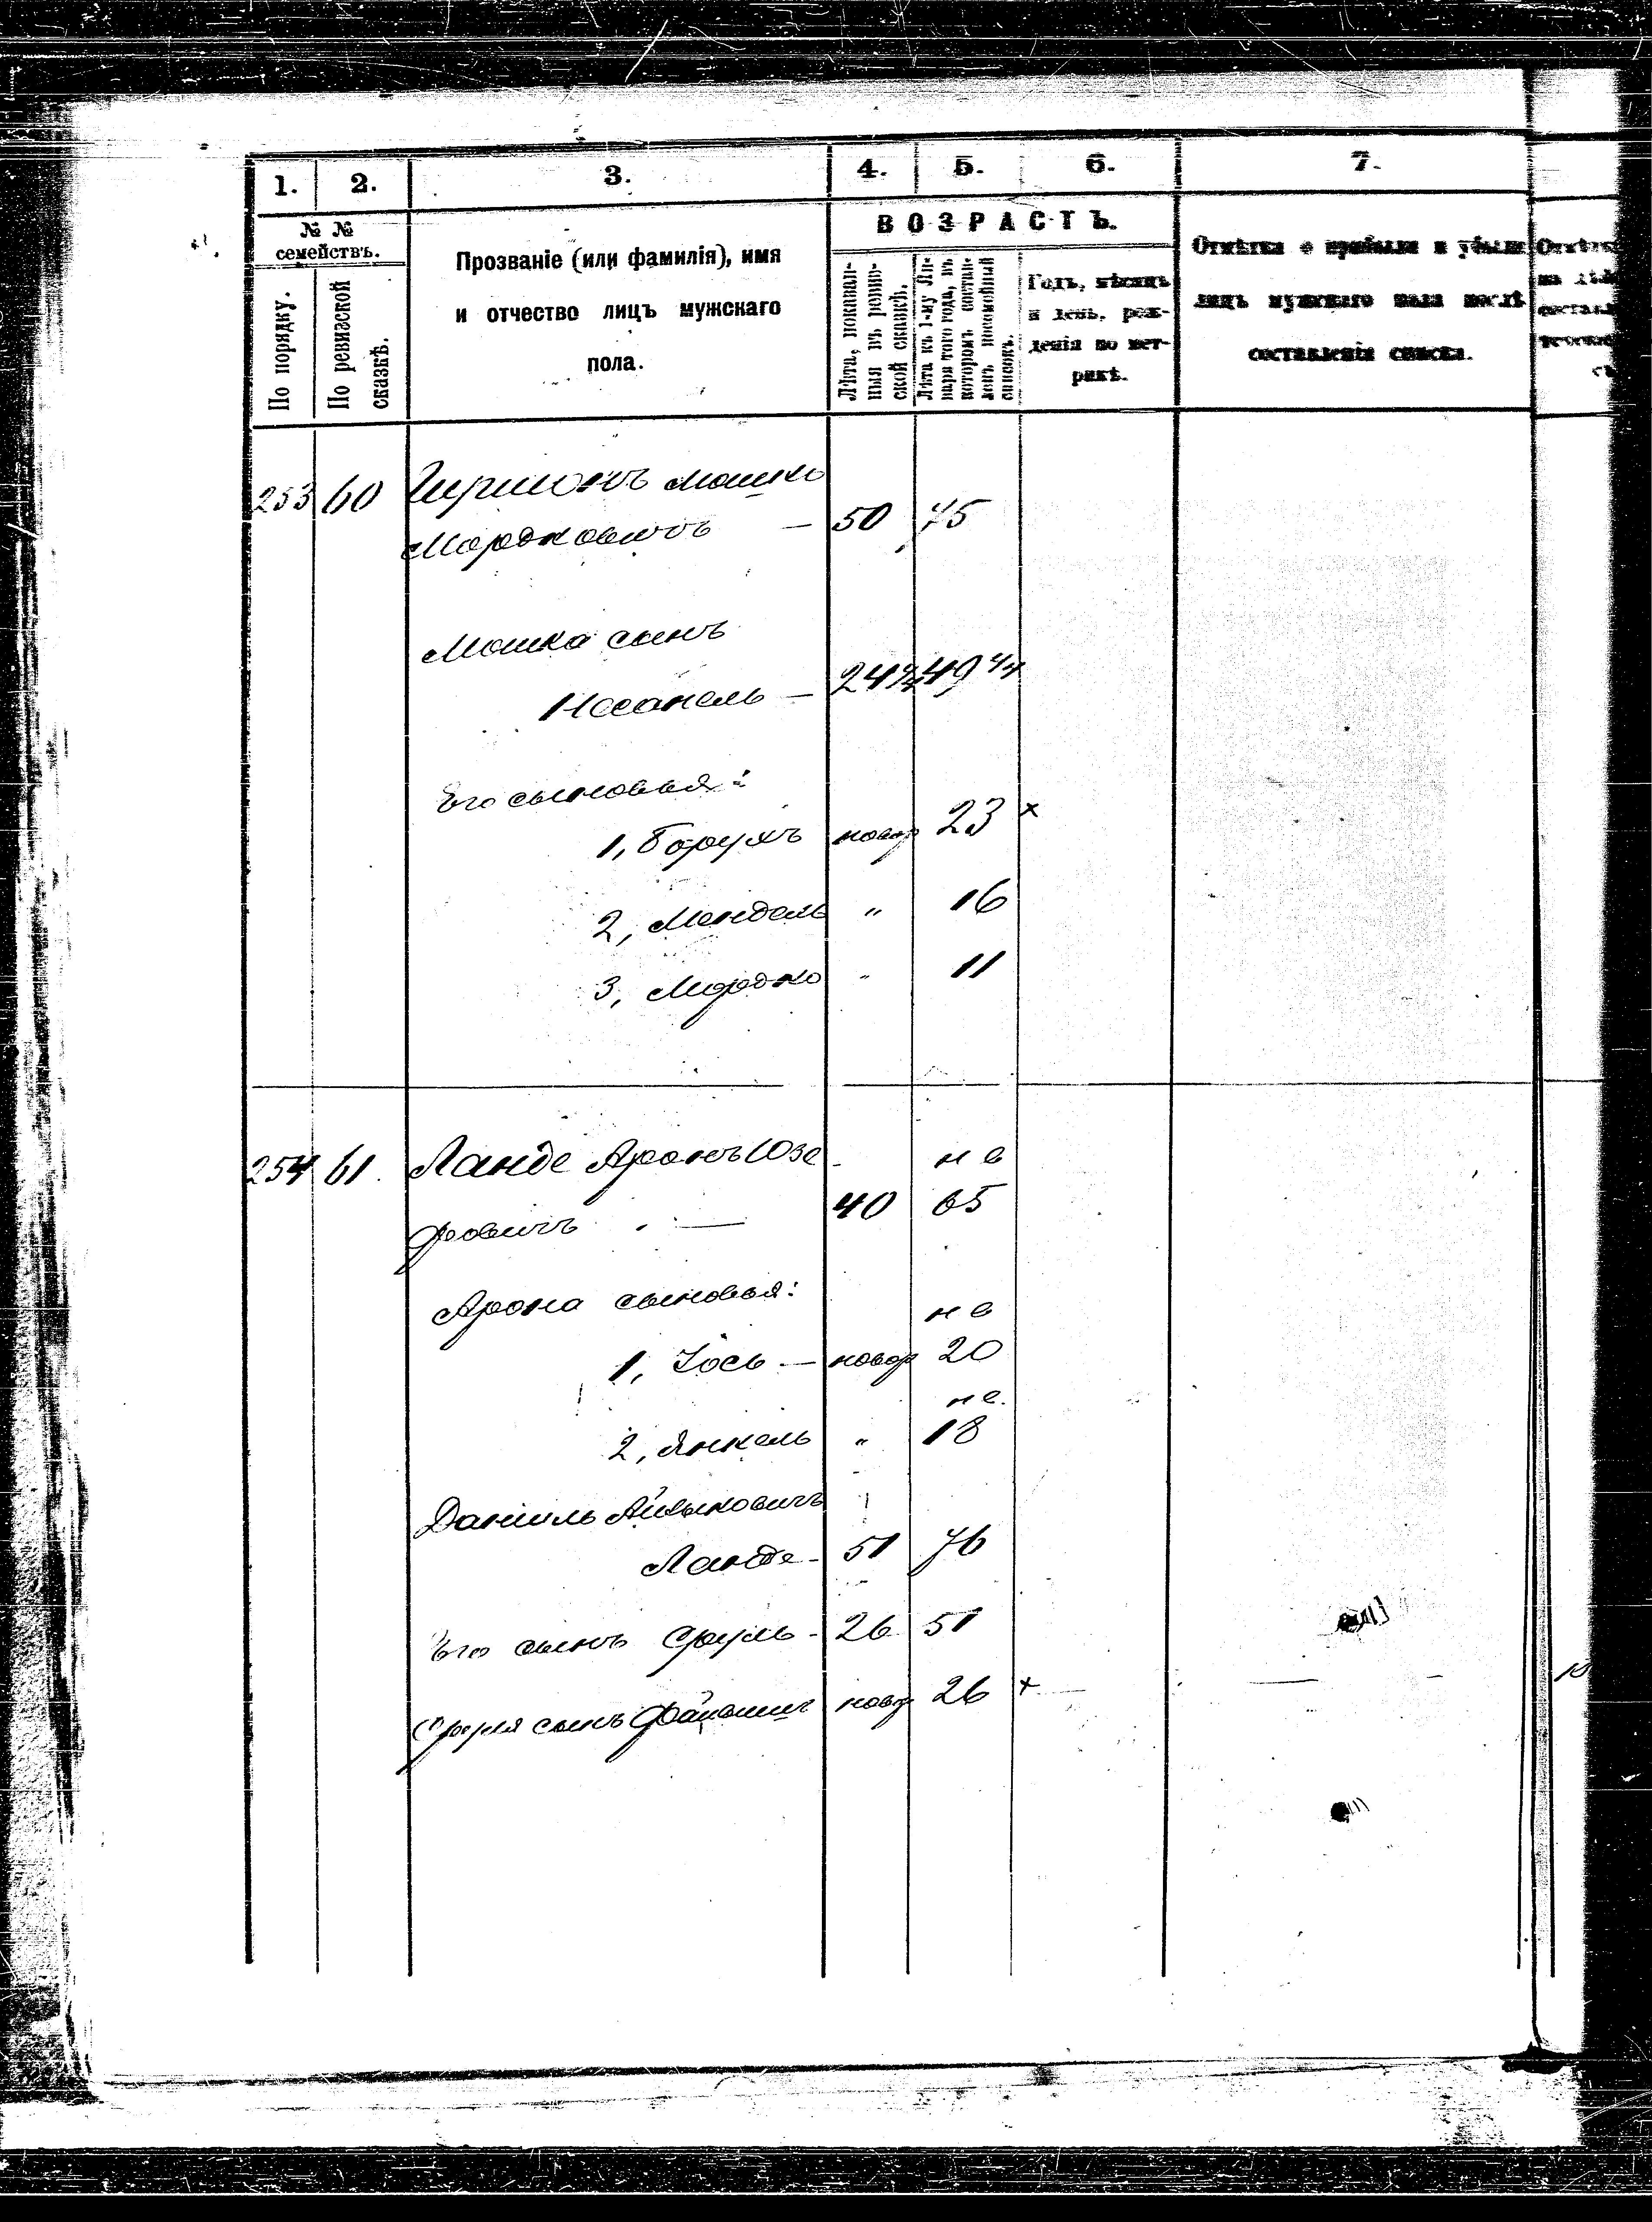 1. 2. 3. 4. 5. 6. 7.
№ № семействъ.
По порядку.
По ревизской сказкѣ.
Прозваніе (или фамилія), имя
и отчество лицъ мужскаго
пола.
ВОЗРАСТЪ.
Лѣта, показан-
ныя въ ревиз-
ской сказкѣ.
Лѣта къ 1-му Ян-
варя того года, въ
которомъ состав-
ленъ посемейный
списокъ.
Годъ, мѣсяцъ
и день, рож-
денія по мет-
рикѣ.
Отмѣтка о прибыли и убыли
лицъ мужскаго пола послѣ
составленія списка.
253 60 Мошко
Мордковичъ — 50 75
Мошка сынъ
Носанель — 24 49
Его сыновья:
1, Борухъ новор 23 ×
2, Мендель " 16
3, Мордко " 11
254 61. Ланде Аронъ Юзе не
фовичъ — 40 65
Арона сыновья: не
1, Іось — новор 20
не.
2, Янкель " 18
Даніиль Айзыковичъ
Ланде - 51 76
Его сынъ Сруль - 26 51
Сруля сынъ новор 26 ×